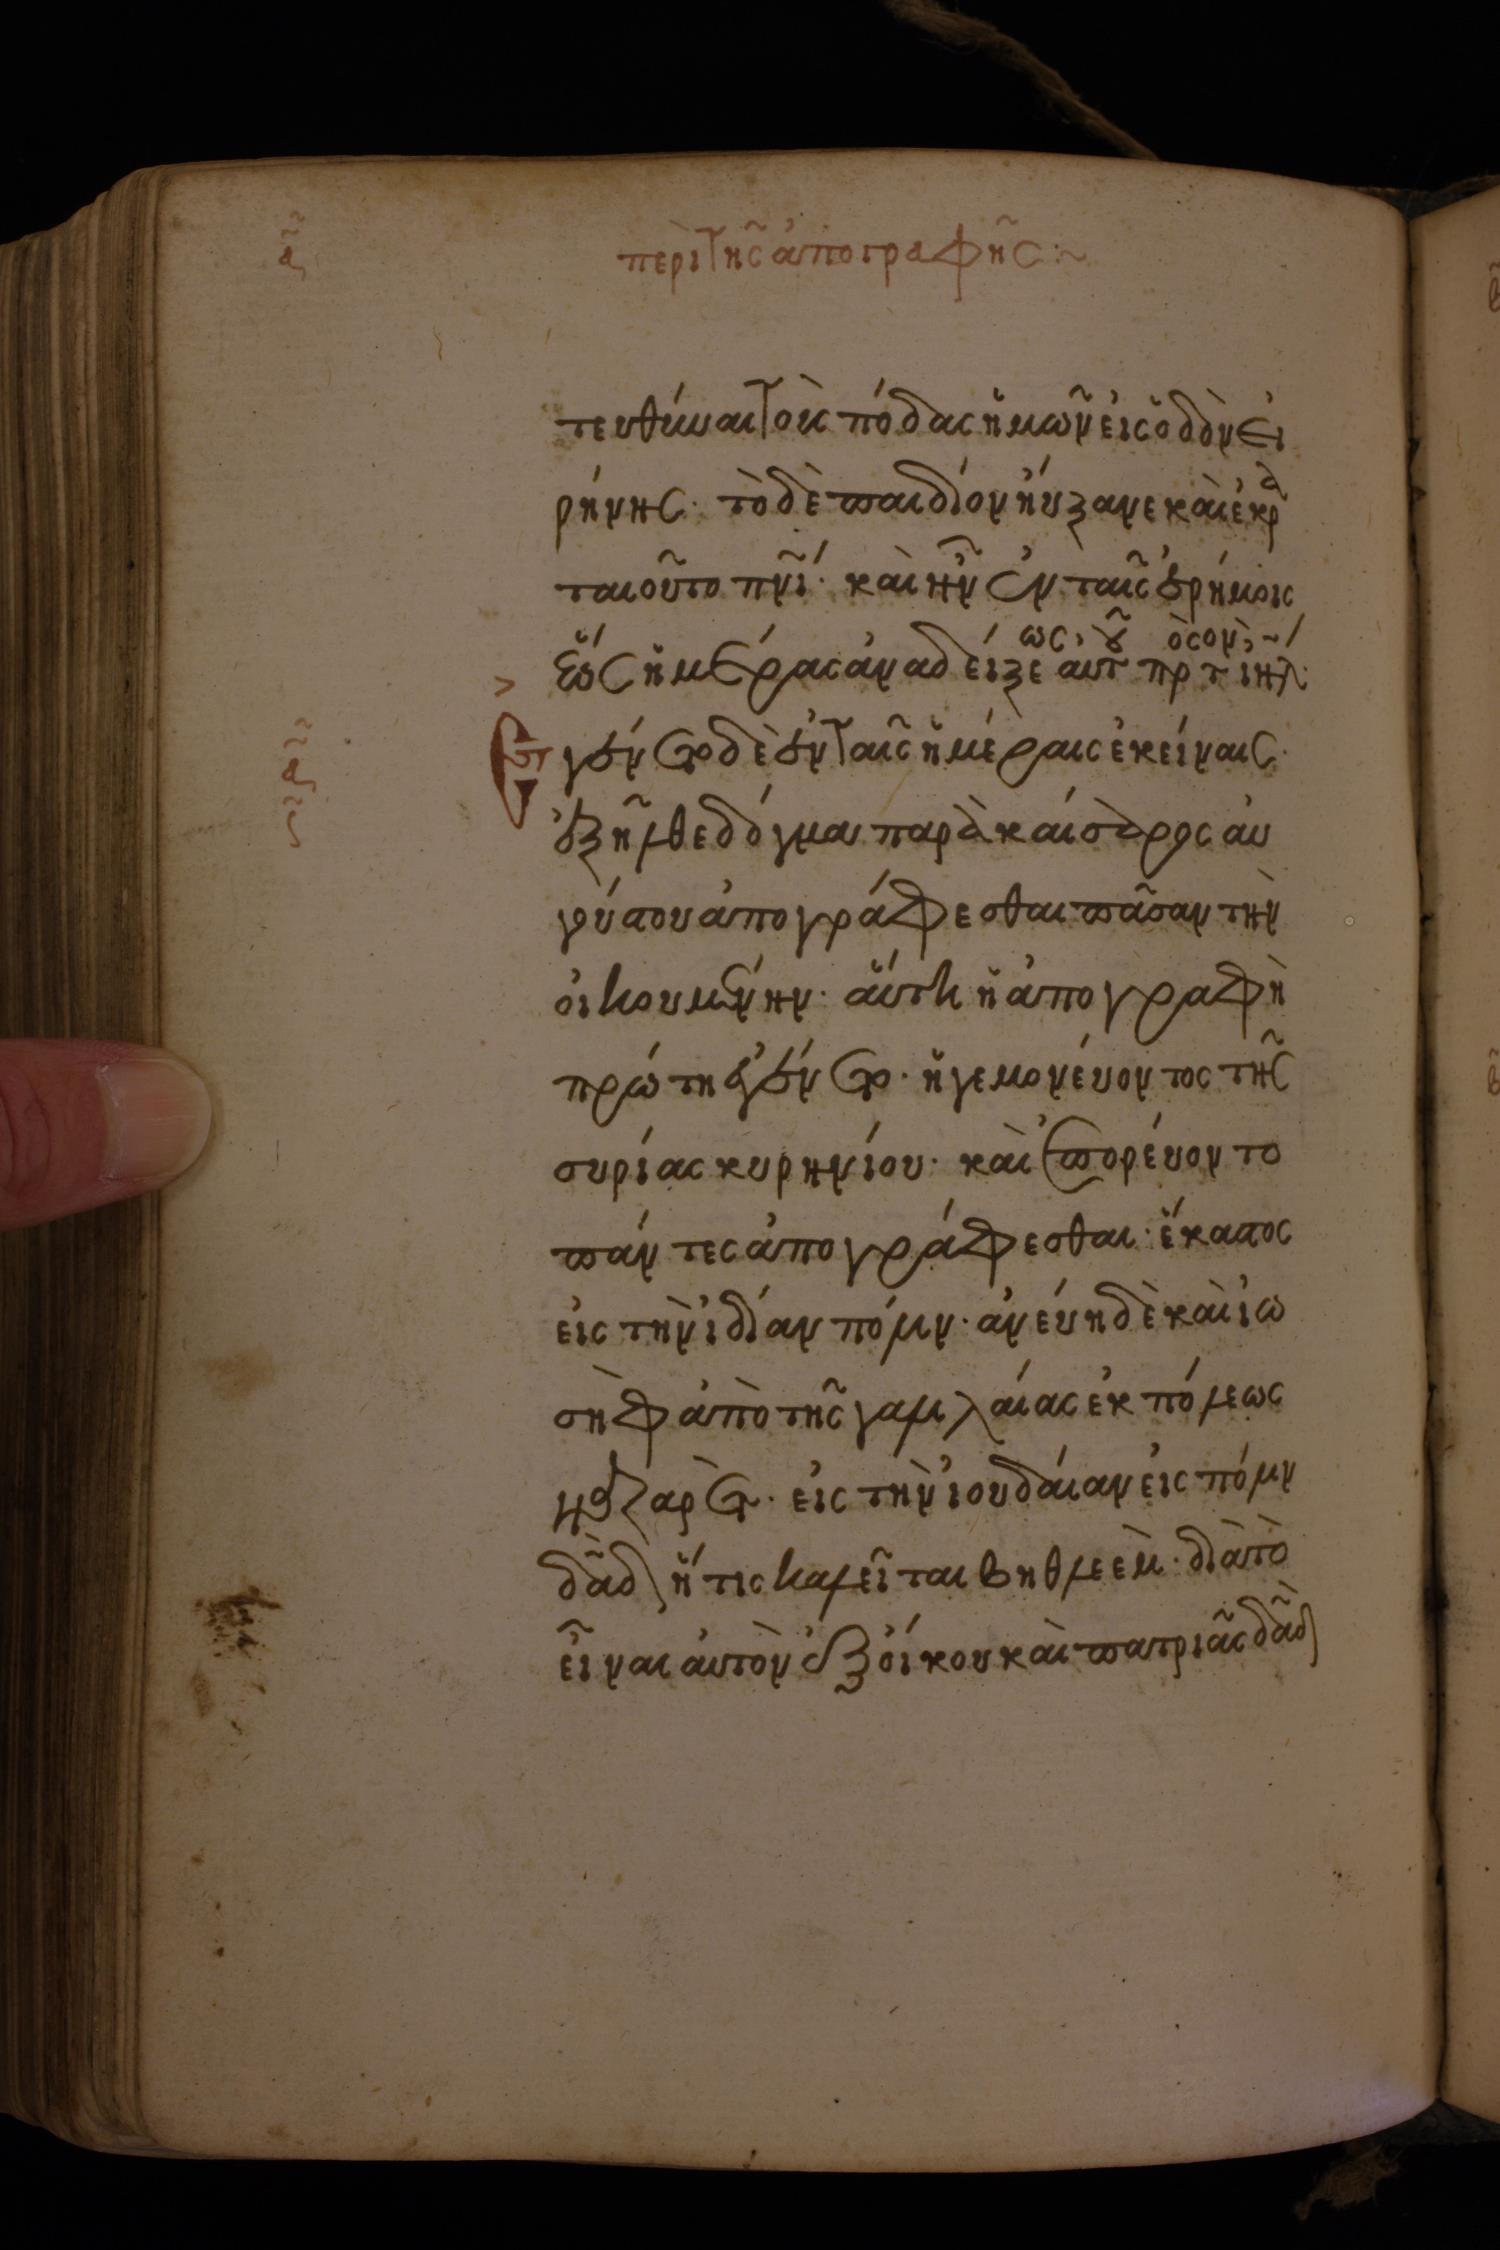 περὶ τῆς ἀπογραφῆς :~
α
τευθῦναι τοὺς πόδας ἡμῶν εἰς ὁδὸν εἰ
ρήνης· τὸ δὲ παιδίον ηὔξανε καὶ ἐκρα
ταιοῦτο πνι· καὶ ἦν ἐν ταῖς ἐρήμοις
ἕως ἡμέρας ἀναδείξεως αὐτοῦ πρὸς τὸν ιηλ·
Ἐγένετο δὲ ἐν ταῖς ἡμέραις ἐκείναις·
α
ἐξῆλθε δόγμα παρὰ καίσαρος αυ
γούστου ἀπογράφεσθαι πᾶσαν τὴν
οἰκουμένην· αὕτη ἡ ἀπογραφὴ
πρώτη ἐγένετο· ἡγεμονεύοντος τῆς
συρίας κυρηνίου· καὶ ἐπορεύοντο
πάντες ἀπογράφεσθαι· ἕκαστος
εἰς τὴν ἰδίαν πόλιν· ἀνέβη δὲ καὶ ἰω
σὴφ ἀπὸ τῆς γαλιλαίας ἐκ πόλεως
ναζαρὲτ· εἰς τὴν ἰουδαίαν εἰς πόλιν
δαδ ἥτις καλεῖται βηθλεὲμ· διὰ τὸ
εἶναι αὐτὸν ἐξ οἴκου καὶ πατριᾶς δαδ